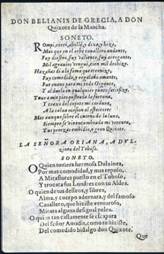 DON BELIANIS DE GRECIA, A DON
Quixote de la Mancha.
SONETO.
Rompi, corté, abollé, y dixe, y hize,
Mas que en el orbe cavallero andante,
Fuy diestro, fuy valiente, fuy arrogante,
Mil agravios vengué, cien mil deshize.
Hazañas di a la fama que eternize,
Fuy comedido, y regalado amante,
Fue enano para mi todo Gigante,
Y al duelo en qualquier punto satisfize.
Tuve a mis pies postrada la fortuna,
Y traxo del copete mi cordura,
A la calva ocasion al estricote
Mas aunque sobre el cuerno de la luna,
Siempre se vio encumbrada mi ventura,
Tus proezas embidio, ô gran Quixote.
LA SEÑORA ORIANA, A DUL-
zinea del Toboso.
SONETO.
O Quien tuviera hermosa Dulzinea,
Por mas comodidad, y mas reposo,
A Miraflores puesto en el Toboso,
Y trocara sus Londres con tu Aldea.
O quien de tus desseos, y librea,
Alma, y cuerpo adornara, y del famoso
Cavallero, que hiziste venturoso,
Mirara alguna desigual pelea.
O quien tan castamente se escapara
Del señor Amadis, como tu hiziste,
Del comedido hidalgo don Quixote,
Que